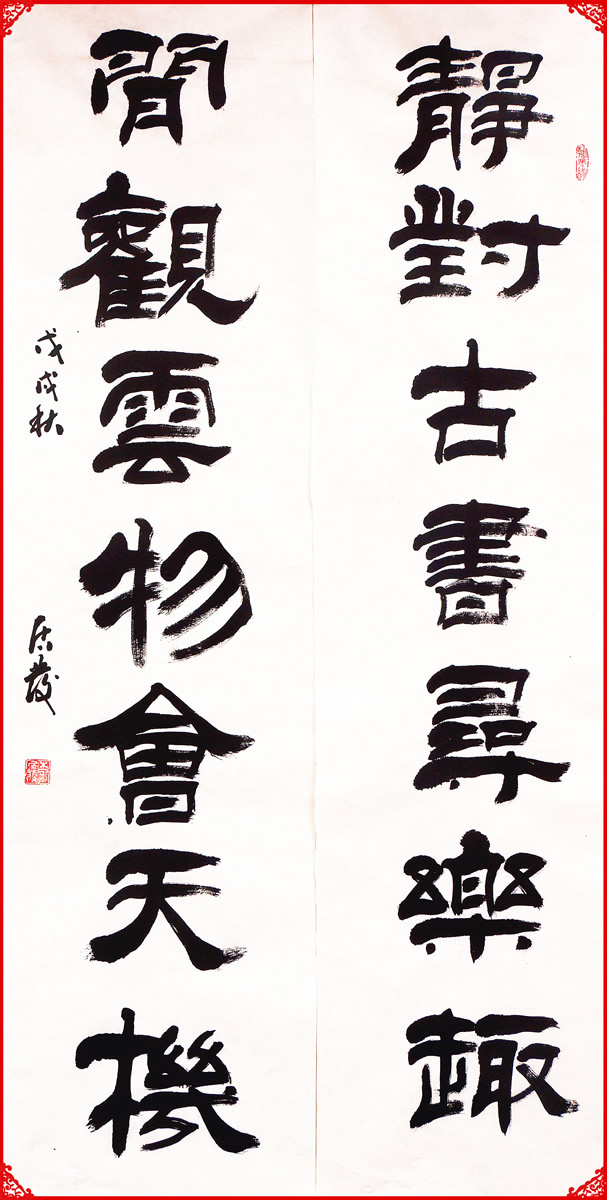 靜對古書尋樂趣
閒觀雲物會天機
戊戌秋
居發